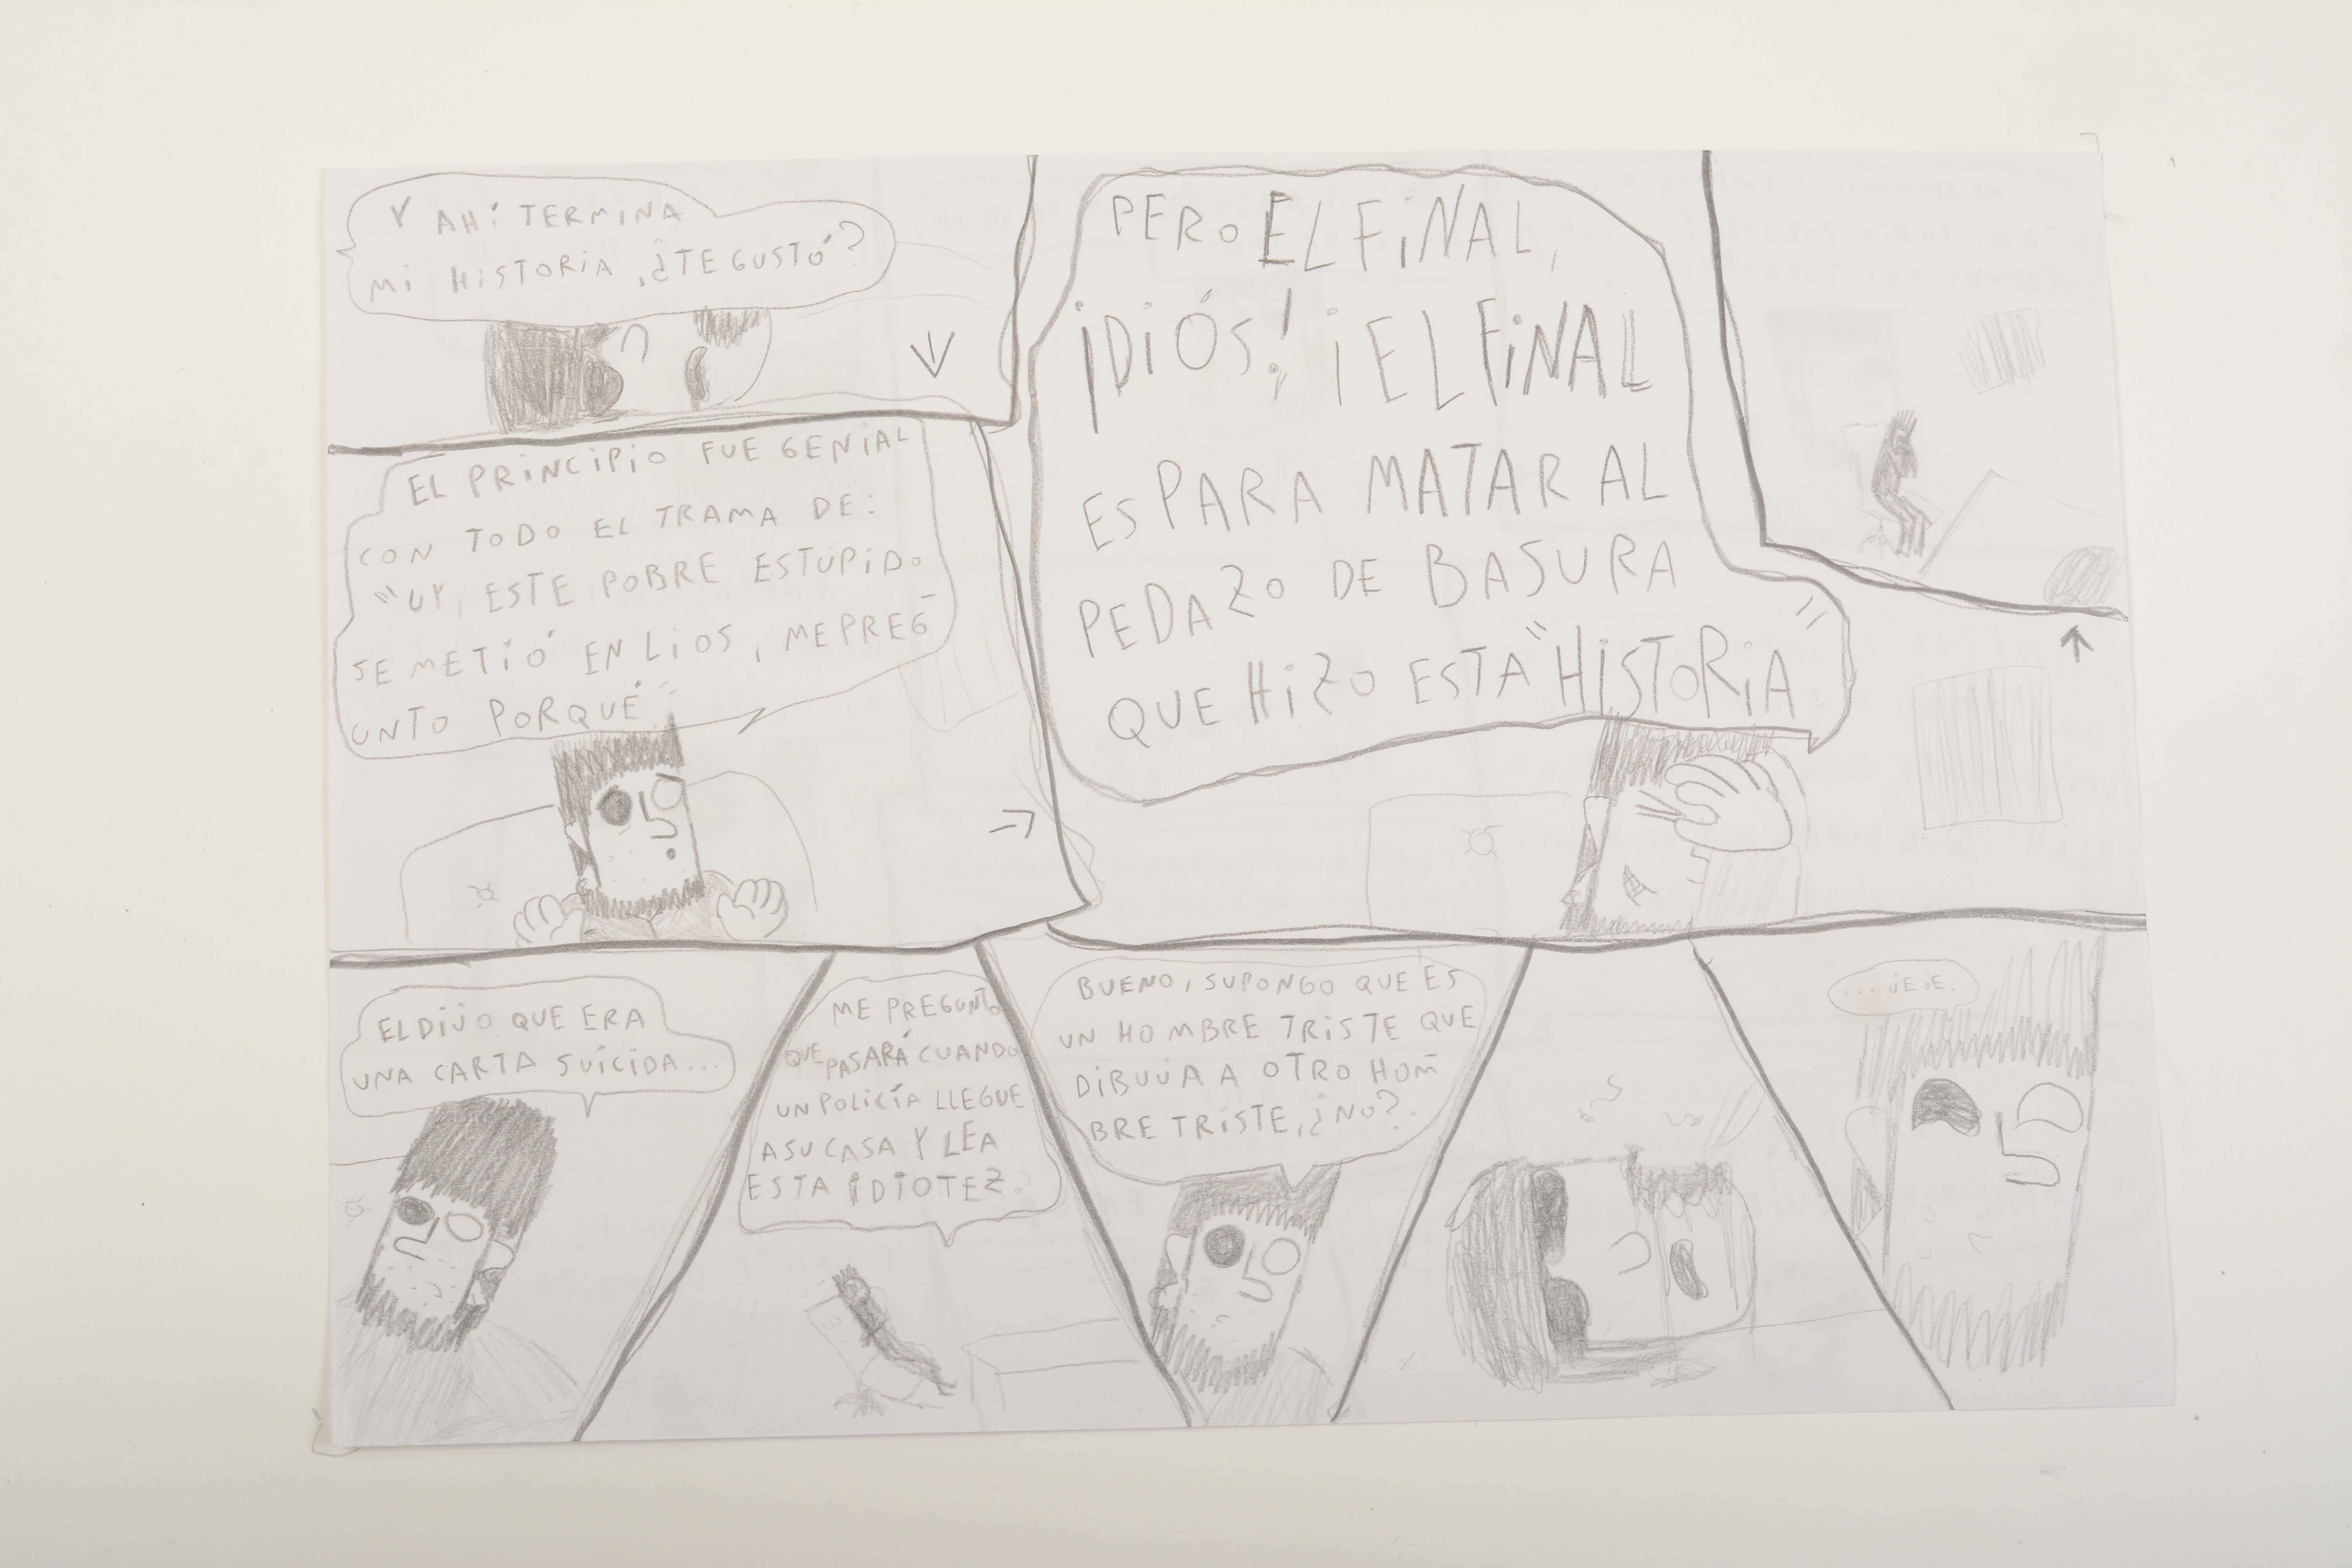 Y AHÍ TERMINA
MI HISTORIA, ¿TE GUSTÓ?
EL PRINCIPIO FUE GENIAL
CON TODO EL TRAMA DE:
"UY, ESTE POBRE ESTÚPIDO
SE METIÓ EN LIOS, ME PREG-
UNTO PORQUÉ"
PERO EL FINAL,
¡DIÓS! ¡EL FINAL
ES PARA MATAR AL
PEDAZO DE BASURA
QUE HIZO ESTA "HISTORIA"
EL DIJO QUE ERA
UNA CARTA SUICIDA...
ME PREGUNTO
QUE PASARÁ CUANDO
UN POLICÍA LLEGUE
A SU CASA Y LEA
ESTA IDIOTEZ?
BUENO, SUPONGO QUE ES
UN HOMBRE TRISTE QUE
DIBUJA A OTRO HOM-
BRE TRISTE, ¿NO?.
...JEJE.